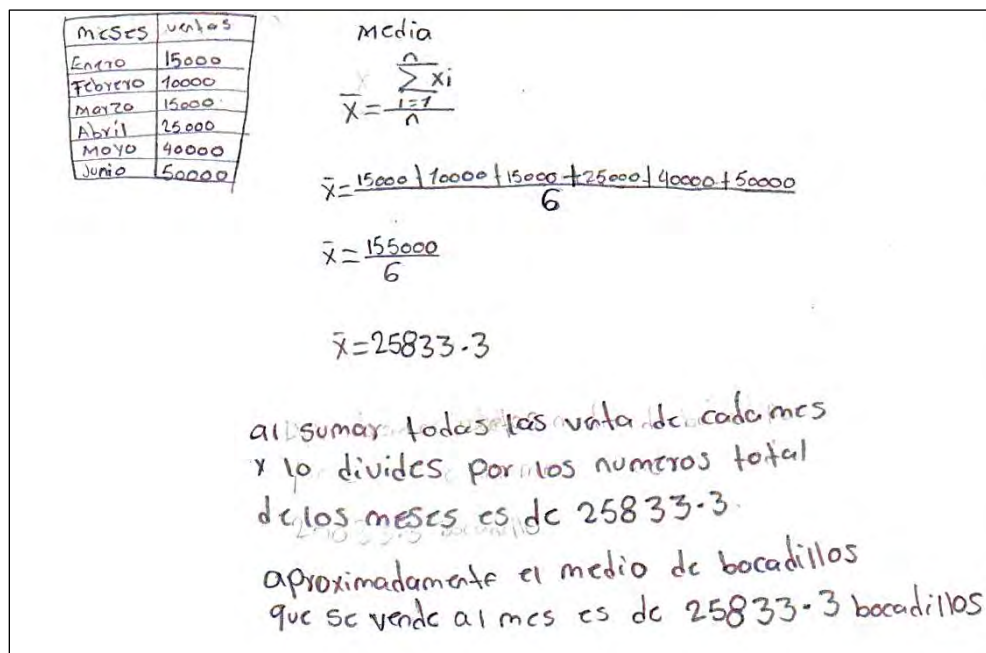 meses ventas
Enero 15000
Febrero 10000
Marzo 15000
Abríl 25000
Mayo 40000
Junio 50000
Media
x̄ = \frac{\sum_{i=1}^{n} xi}{n}
x̄ = \frac{15000 + 10000 + 15000 + 25000 + 40000 + 50000}{6}
x̄ = \frac{155000}{6}
x̄ = 25833.3
al sumar todas las venta de cada mes
y lo divides por los numeros total
de los meses es de 25833.3
aproximadamente el medio de bocadillos
que se vende al mes es de 25833.3 bocadillos